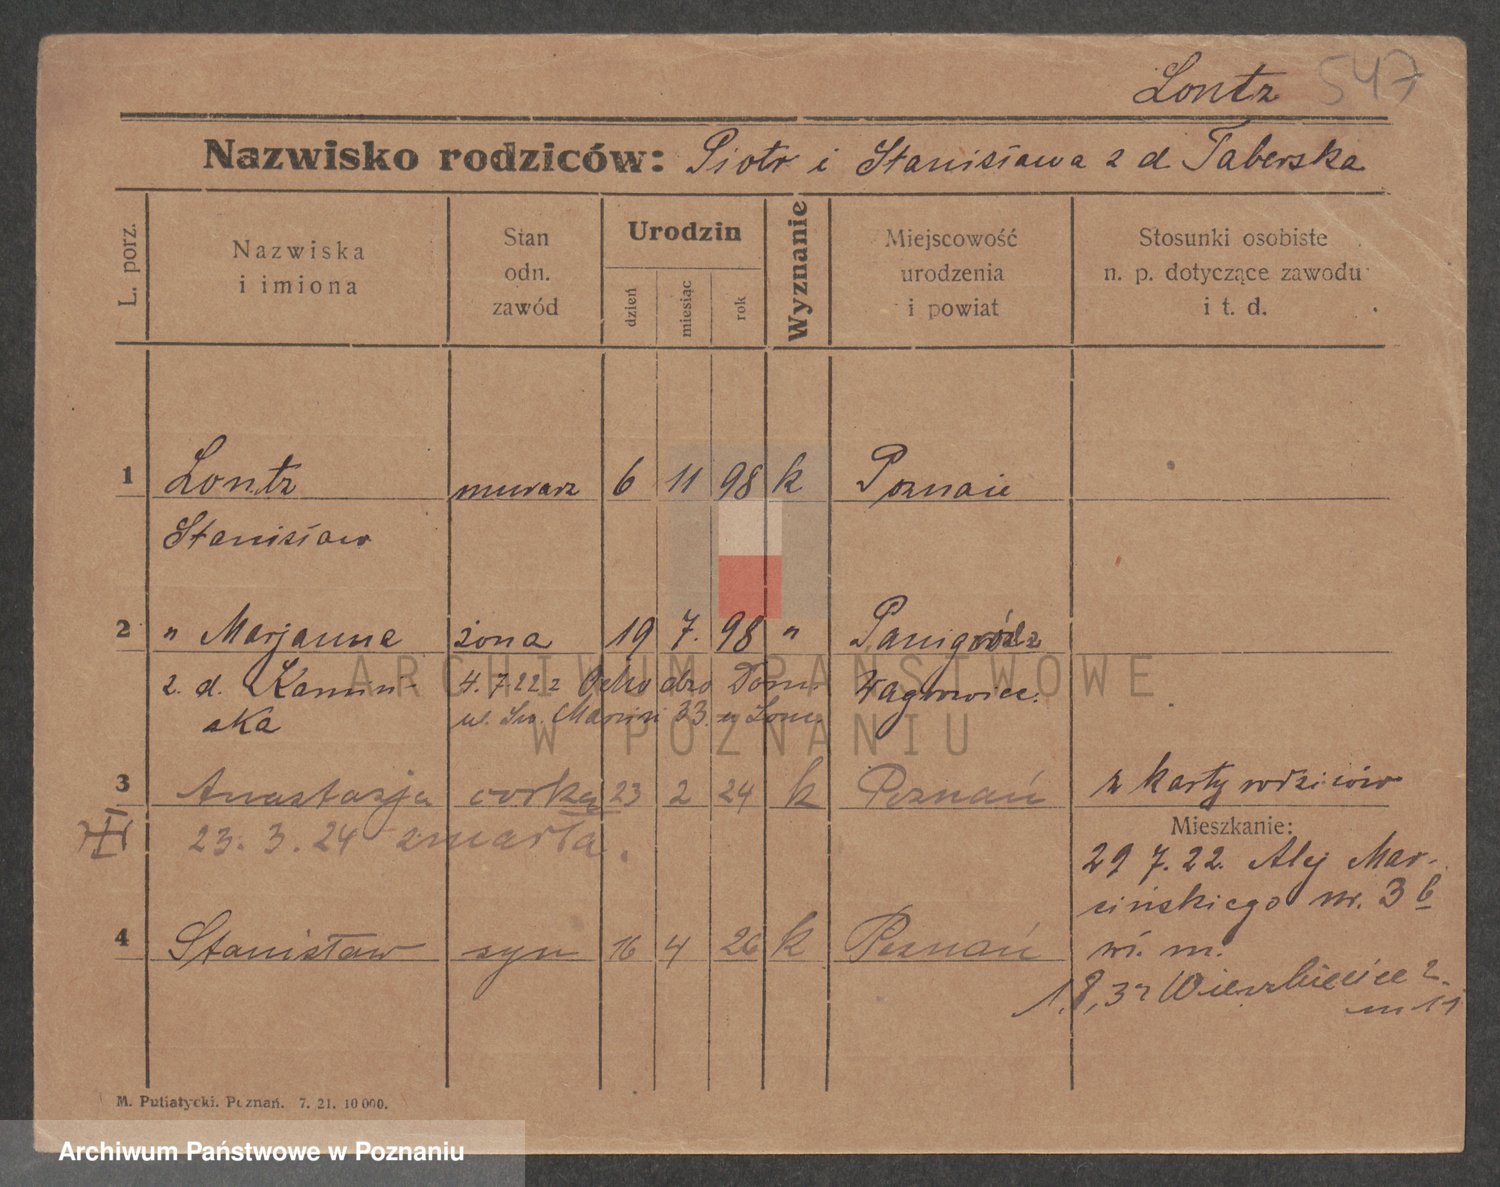 Lontz 547
Nazwisko rodziców: Piotr i Stanisława z d Taberska
L. porz.
Nazwiska
i imiona
Stan
odn.
zawód
Urodzin
dzień
miesiąc
rok
Wyznanie
Miejscowość
urodzenia
i powiat
Stosunki osobiste
n. p. dotyczące zawodu
i t. d.
1 Lontz murarz 6 11 98 k Poznań
Stanisław
2 " Marjanna żona 19 7. 98 " Panigródz
z. d. Kamiń- 4. 7 22 z Dom. Wągrowiec.
ska ul. Św. Marcin 33.
3 Anastazja córka 23 2 24 k Poznań z karty rodziców
23. 3. 24 zmarła.
Mieszkanie:
29 7. 22. Alej Mar-
cińskiego nr. 3 b
4 Stanisław syn 16 4 26 k Poznań
m.
Wierzbięcice 2
m 11
M. Putiatycki. Poznań. 7. 21. 10 000.
ARCHIWUM PAŃSTWOWE
W POZNANIU
Archiwum Państwowe w Poznaniu